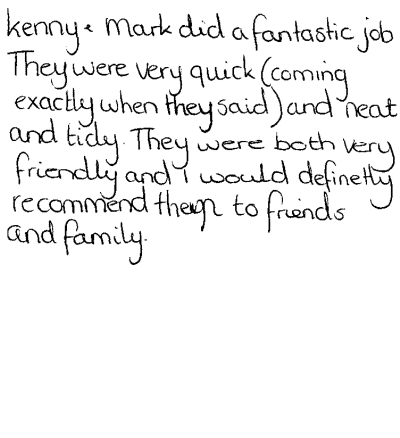 Kenny & Mark did a fantastic job
They were very quick (coming
exactly when they said) and neat
and tidy. They were both very
friendly and I would definetly
recommend them to friends
and family.